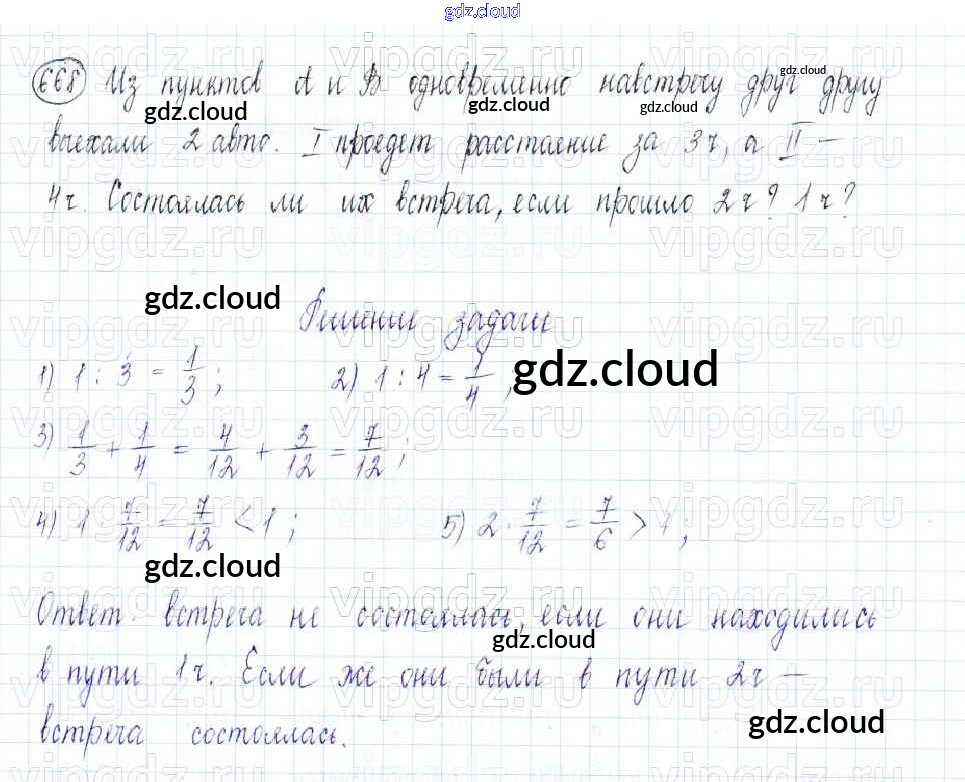 gdz.cloud
668 Из пунктов А и В одновременно навстречу друг другу
выехали 2 авто. I проедет расстояние за 3ч, а II –
4ч. Состоялась ли их встреча, если прошло 2ч? 1ч?
Решение задачи
1) 1 : 3 = 1/3; 2) 1 : 4 = 1/4;
3) 1/3 + 1/4 = 4/12 + 3/12 = 7/12;
4) 1 · 7/12 = 7/12 < 1; 5) 2 · 7/12 = 7/6 > 1;
Ответ: встреча не состоялась, если они находились
в пути 1ч. Если же они были в пути 2ч –
встреча состоялась.
gdz.cloud
vipgdz.ru